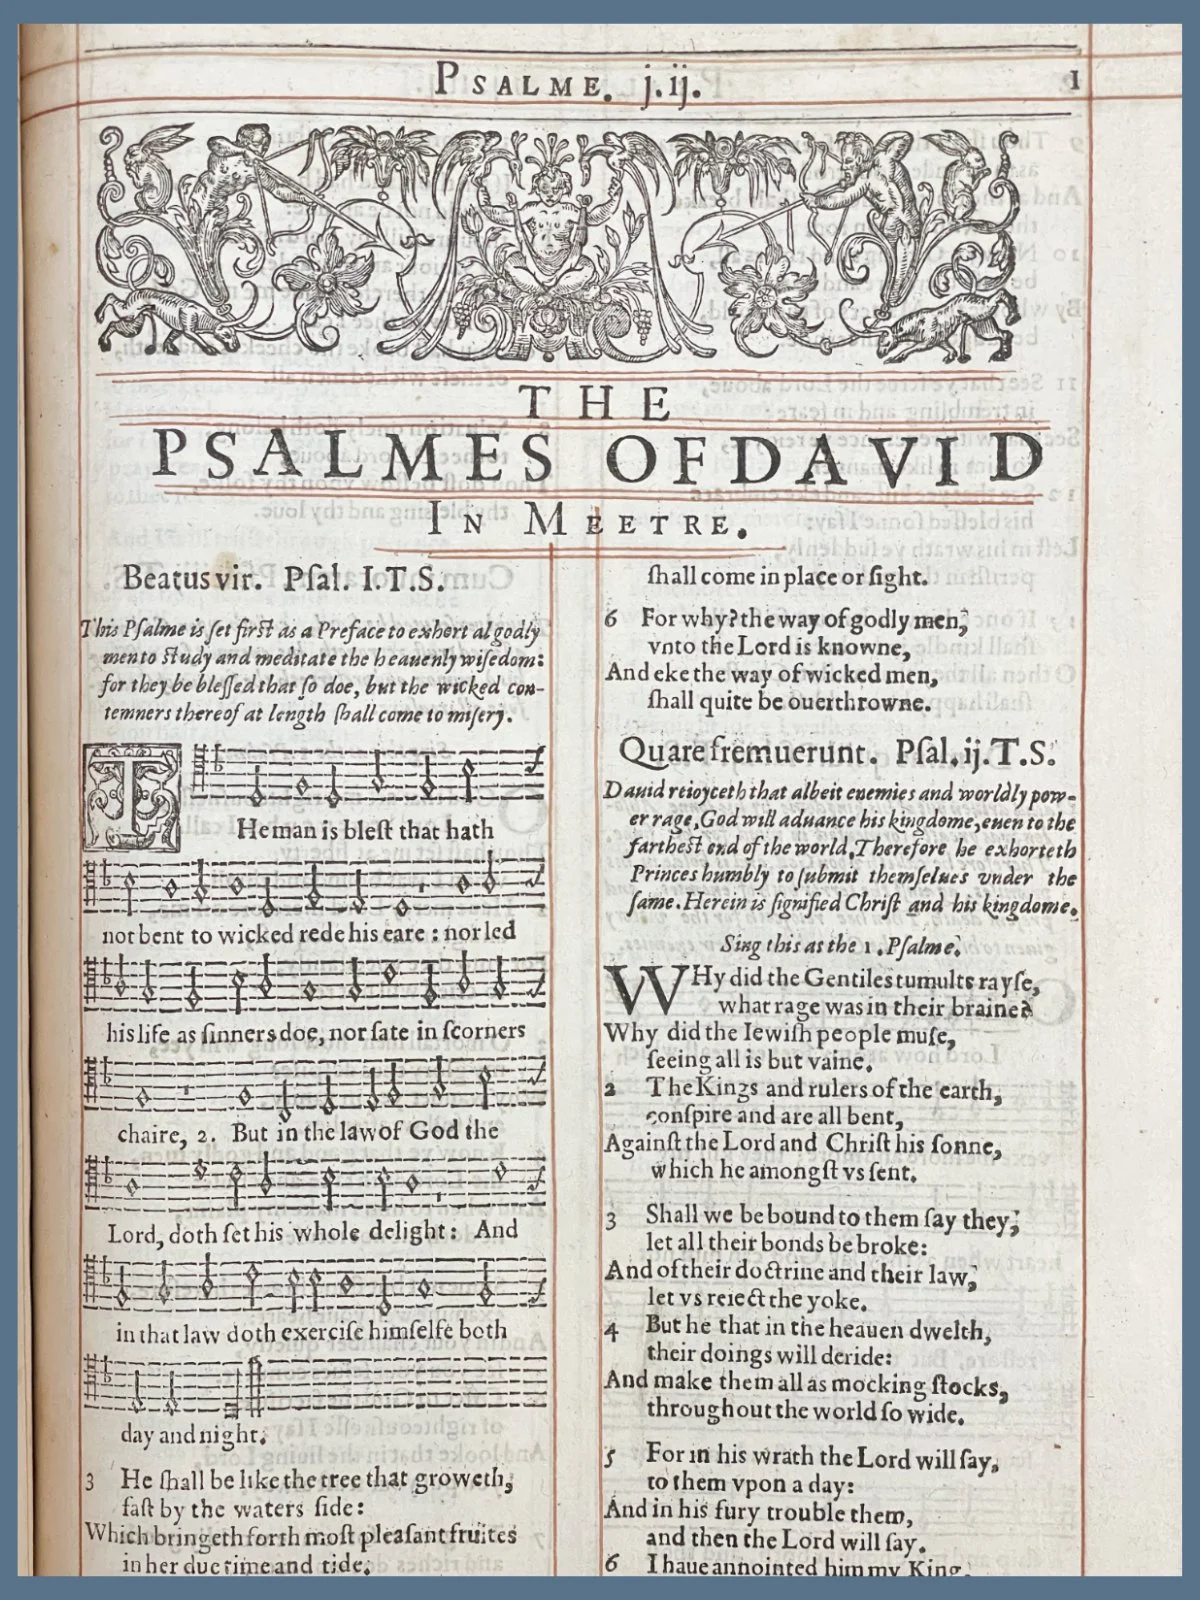 PSALME. j.ij.
1
THE
PSALMES OF DAVID
IN MEETRE.
Beatus vir. Pſal. I.T.S.
This Pſalme is ſet firſt as a Preface to exhort al godly
men to ſtudy and meditate the heauenly wiſedom:
for they be bleſſed that ſo doe, but the wicked con-
temners thereof at length ſhall come to miſery.
THe man is bleſt that hath
not bent to wicked rede his eare : nor led
his life as ſinners doe, nor ſate in ſcorners
chaire, 2. But in the law of God the
Lord, doth ſet his whole delight : And
in that law doth exerciſe himſelfe both
day and night.
3 He ſhall be like the tree that groweth,
faſt by the waters ſide:
Which bringeth forth moſt pleaſant fruites
in her due time and tide.
ſhall come in place or ſight.
6 For why? the way of godly men,
vnto the Lord is knowne,
And eke the way of wicked men,
ſhall quite be ouerthrowne.
Quare fremuerunt. Pſal.ij.T.S.
Dauid reioyceth that albeit enemies and worldly pow-
er rage, God will aduance his kingdome, euen to the
fartheſt end of the world, Therefore he exhorteth
Princes humbly to ſubmit themſelues vnder the
ſame. Herein is ſignified Chriſt and his kingdome.
Sing this as the 1. Pſalme.
WHy did the Gentiles tumults rayſe,
what rage was in their braine?
Why did the Iewiſh people muſe,
ſeeing all is but vaine.
2 The Kings and rulers of the earth,
conſpire and are all bent,
Againſt the Lord and Chriſt his ſonne,
which he amongſt vs ſent.
3 Shall we be bound to them ſay they,
let all their bonds be broke:
And of their doctrine and their law,
let vs reiect the yoke.
4 But he that in the heauen dwelth,
their doings will deride:
And make them all as mocking ſtocks,
throughout the world ſo wide.
5 For in his wrath the Lord will ſay,
to them vpon a day:
And in his fury trouble them,
and then the Lord will ſay.
6 I haue annointed him my King,